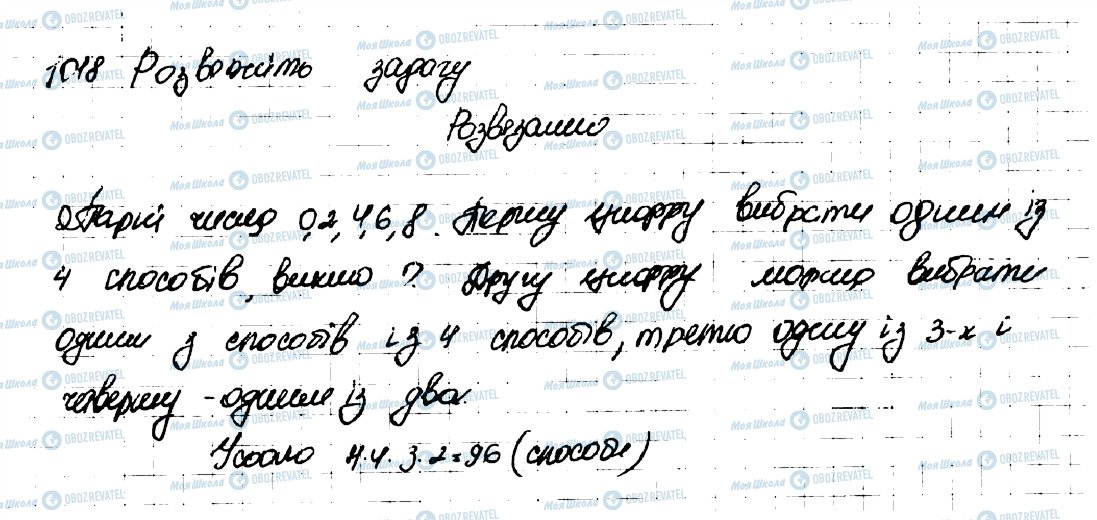 1018 Розвяжіть задачу
Розвязання
Парні числа 0,2,4,6,8. Першу цифру вибрати одним із
4 способів, викл ? Другу цифру можна вибрати
одним з способів із 4 способів, третю одну із 3-х і
четверту - одним із два.
Усього 4·4·3·2=96 (способи)